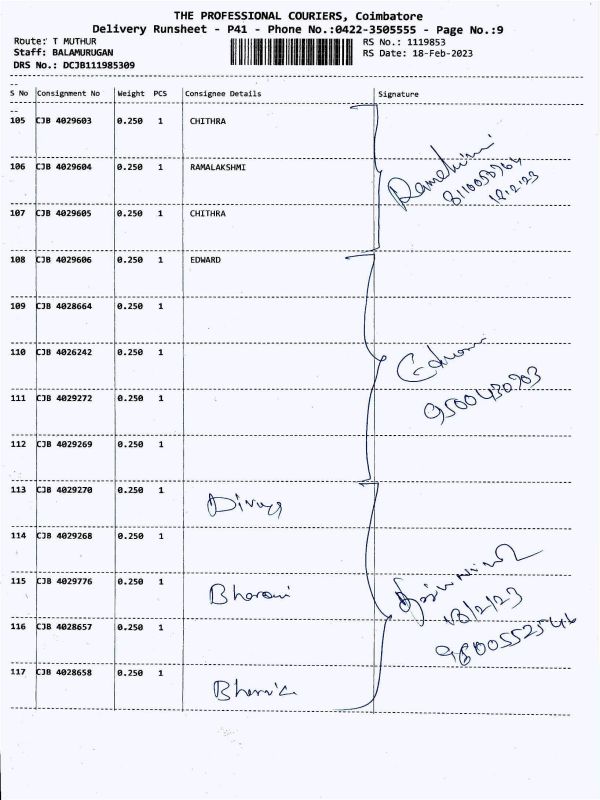 THE PROFESSIONAL COURIERS, Coimbatore
Delivery Runsheet - P41 - Phone No.:0422-3505555 - Page No.:9
Route: T MUTHUR RS No.: 1119853
Staff: BALAMURUGAN RS Date: 18-Feb-2023
DRS No.: DCJB111985309
--
S No Consignment No Weight PCS Consignee Details Signature
--
105 CJB 4029603 0.250 1 CHITHRA
106 CJB 4029604 0.250 1 RAMALAKSHMI
18.2.23
107 CJB 4029605 0.250 1 CHITHRA
108 CJB 4029606 0.250 1 EDWARD
109 CJB 4028664 0.250 1
110 CJB 4026242 0.250 1
111 CJB 4029272 0.250 1
9500430903
112 CJB 4029269 0.250 1
113 CJB 4029270 0.250 1 Divya
114 CJB 4029268 0.250 1
115 CJB 4029776 0.250 1 Bharani
18/2/23
116 CJB 4028657 0.250 1
9800552546
117 CJB 4028658 0.250 1